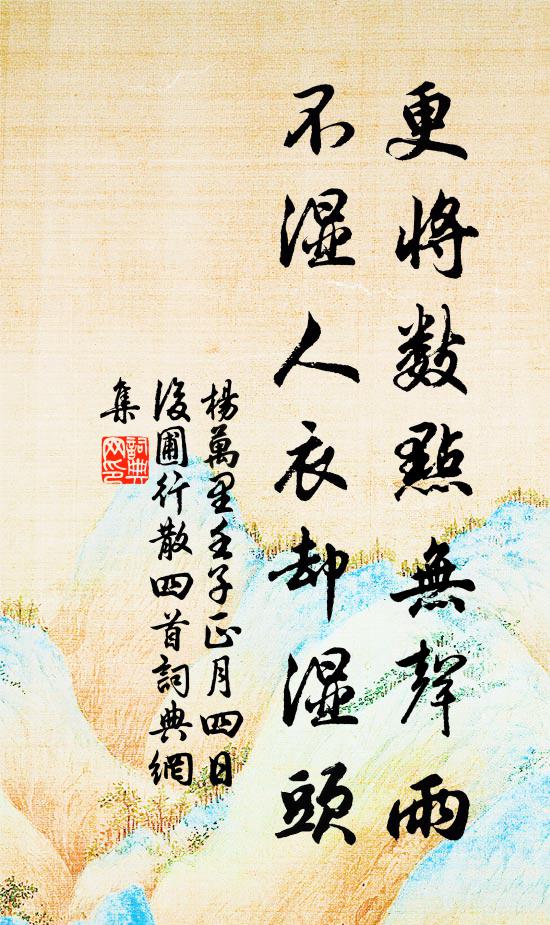 更將數點無聲雨
不濕人衣却濕頭
楊萬里壬子正月四日
後圃行散四首詞典網
集
詞典
网印